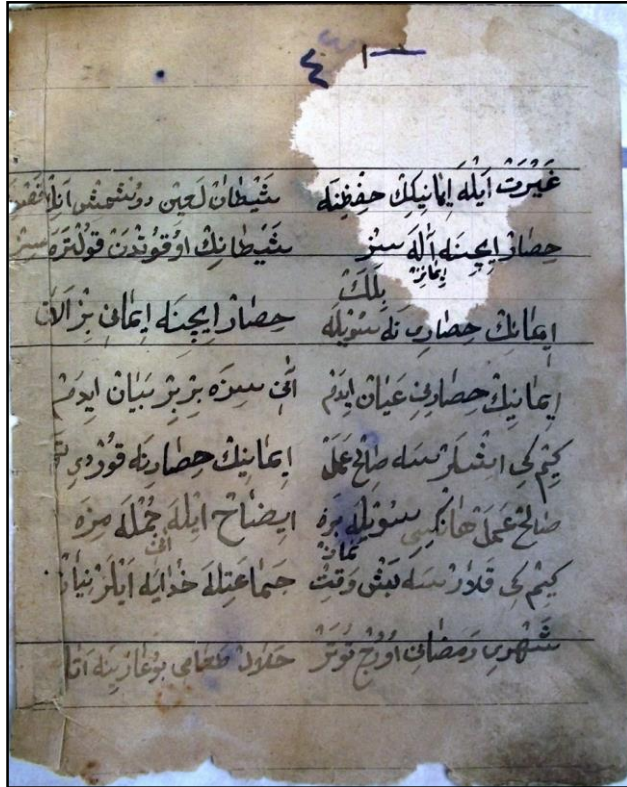 ٤
غَيْرَتْ اَيْلَه اِيمَانِيكِكْ حِفْظِنَه شَيْطَانْ لَعِينْ دوُشْمِشْ
حِصَارْ اِيچِنَه اَلَه سِز شَيْطَانِكْ اوُقوُندَنْ قوُلتَرَه سِز
بِلَكْ
اِيمَانِكْ حِصَارِى نَه سُويْلَه حِصَارْ اِيچِنَه اِيمَانِى بِزْ اَلاَنْ
اِيمَانِيكْ حِصَارِينِى عَيَانْ ايدَمْ اَنِى سِزَه بِرْ بِرْ بَيَانْ ايدَمْ
كِيمْ كِى اِشْلَرْسَه صَالِحْ عَمَلْ اِيمَانِيكْ حِصَارِينَه قوُرْدِى
صَالِحْ عَمَلْ هَانْكِيسِى سُويْلَه بِزَه ايضَاحْ ايْلَه جُمْلَه مِزَه
نَمَازْ
كِيمْ كِى قِلاَرْسَه بَشْ وَقِتْ جَمَاعَتِلَه خُدَايَه اَيْلَرْ نِيَازْ
شَهْرِى رَمَضَانِ اوُرُجْ توُتَرْ حَلاَلْ طَعَامِى بوُغَازِينَه